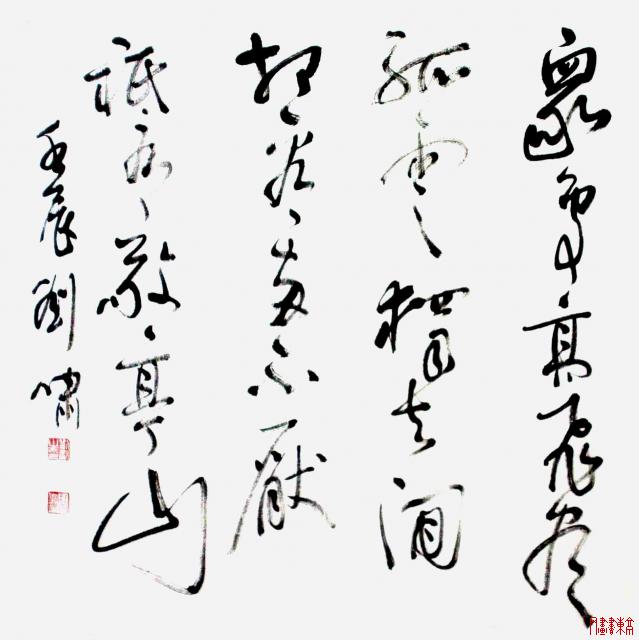 眾鳥高飛盡
孤雲獨去閒
相看兩不厭
祗有敬亭山
壬辰劉嘯